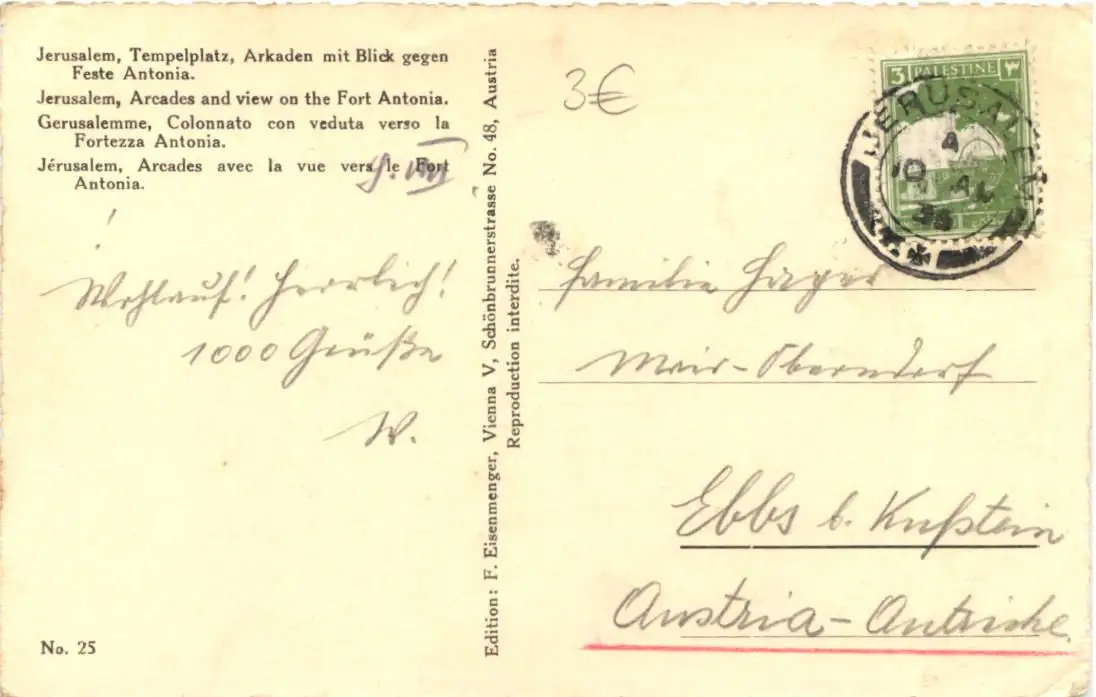 Jerusalem, Tempelplatz, Arkaden mit Blick gegen
Feste Antonia.
Jerusalem, Arcades and view on the Fort Antonia.
Gerusalemme, Colonnato con veduta verso la
Fortezza Antonia.
Jérusalem, Arcades avec la vue vers le Fort
Antonia.
Wohlauf! Herrlich!
1000 Grüße
W.
No. 25
Edition: F. Eisenmenger, Vienna V, Schönbrunnerstrasse No. 48, Austria
Reproduction interdite.
3€
3 PALESTINE ٣
JERUSALEM
10 AU
Familie Hager
Oberndorf
Ebbs b. Kufstein
Austria - Autriche